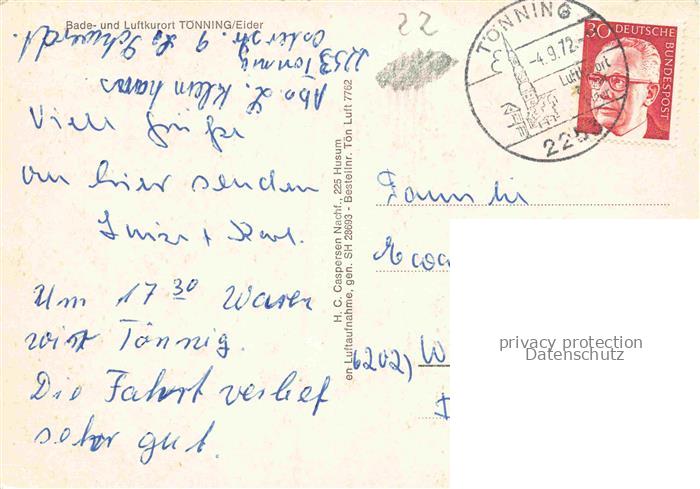 Bade- und Luftkurort TÖNNING/Eider
Abs. L. Kleinhans
2253 Tönning
Osterstr. 9
Viele Grüße
von hier senden
Luise + Karl.
Um 17 30 Waren
wir Tönnig.
Die Fahrt verlief
sehr gut.
H. C. Caspersen Nachf., 225 Husum
en Luftaufnahme, gen. SH 28693 - Bestellnr. Tön Luft 7762
22
TÖNNING
-4.9.72-
Luftkurort
30 DEUTSCHE
BUNDESPOST
Familie
6202) W
privacy protection
Datenschutz